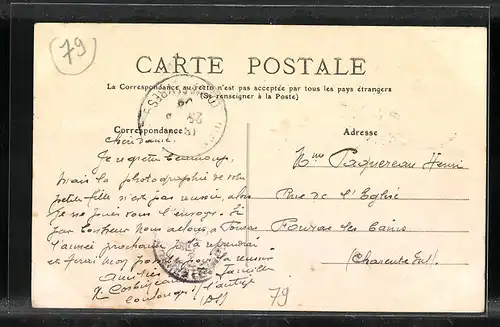 79
CARTE POSTALE
La Correspondance au recto n'est pas acceptée par tous les pays étrangers
(Se renseigner à la Poste)
Correspondance
Adresse
Chère dame.
Je regrette beaucoup,
Mais la photographie de votre
petite-fille n'est pas réussie, alors
je ne puis vous l'envoyer. Si
par bonheur nous allons à Fouras
l'année prochaine je la reprendrai
et ferai mon possible pour la réussir
Amitiés Famille
Coulonges s/ l'autize
(D.S)
Mme Paquereau Henri
Rue de l'Eglise
Fouras les bains
(Charente Inf.)
79